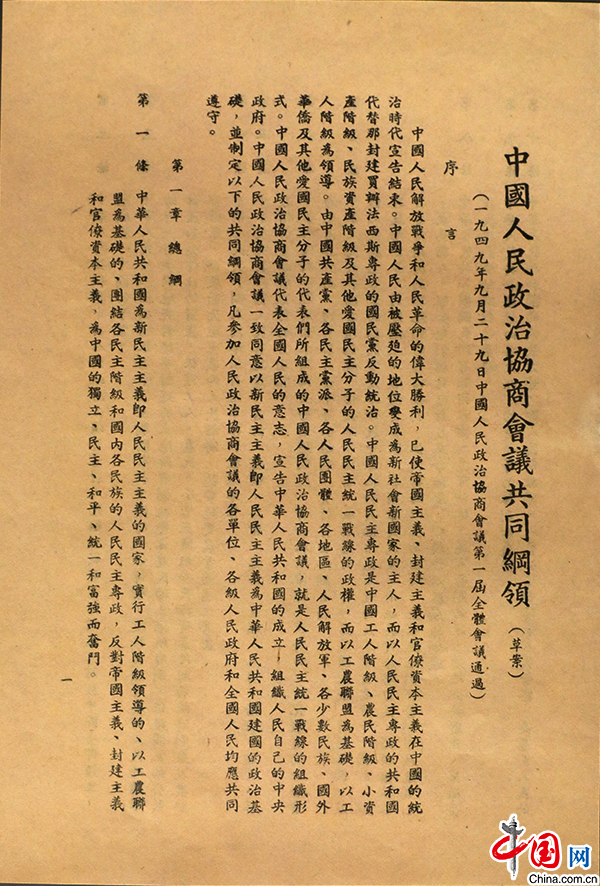 中國人民政治協商會議共同綱領（草案）
（一九四九年九月二十九日中國人民政治協商會議第一屆全體會議通過）
序言
中國人民解放戰爭和人民革命的偉大勝利，已使帝國主義、封建主義和官僚資本主義在中國的統
治時代宣告結束。中國人民由被壓廹的地位變成為新社會新國家的主人，而以人民民主專政的共和國
代替那封建買辦法西斯專政的國民黨反動統治。中國人民民主專政是中國工人階級、農民階級、小資
產階級、民族資產階級及其他愛國民主分子的人民民主統一戰線的政權，而以工農聯盟為基礎，以工
人階級為領導。由中國共產黨、各民主黨派、各人民團體、各地區、人民解放軍、各少數民族、國外
華僑及其他愛國民主分子的代表們所組成的中國人民政治協商會議，就是人民民主統一戰線的組織形
式。中國人民政治協商會議代表全國人民的意志，宣告中華人民共和國的成立，組織人民自己的中央
政府。中國人民政治協商會議一致同意以新民主主義即人民民主主義為中華人民共和國建國的政治基
礎，並制定以下的共同綱領，凡參加人民政治協商會議的各單位、各級人民政府和全國人民均應共同
遵守。
第一章總綱
第一條 中華人民共和國為新民主主義即人民民主主義的國家，實行工人階級領導的、以工農聯
盟為基礎的、團結各民主階級和國內各民族的人民民主專政，反對帝國主義、封建主義
和官僚資本主義，為中國的獨立、民主、和平、統一和富強而奮鬥。
一
中国网
China.com.cn